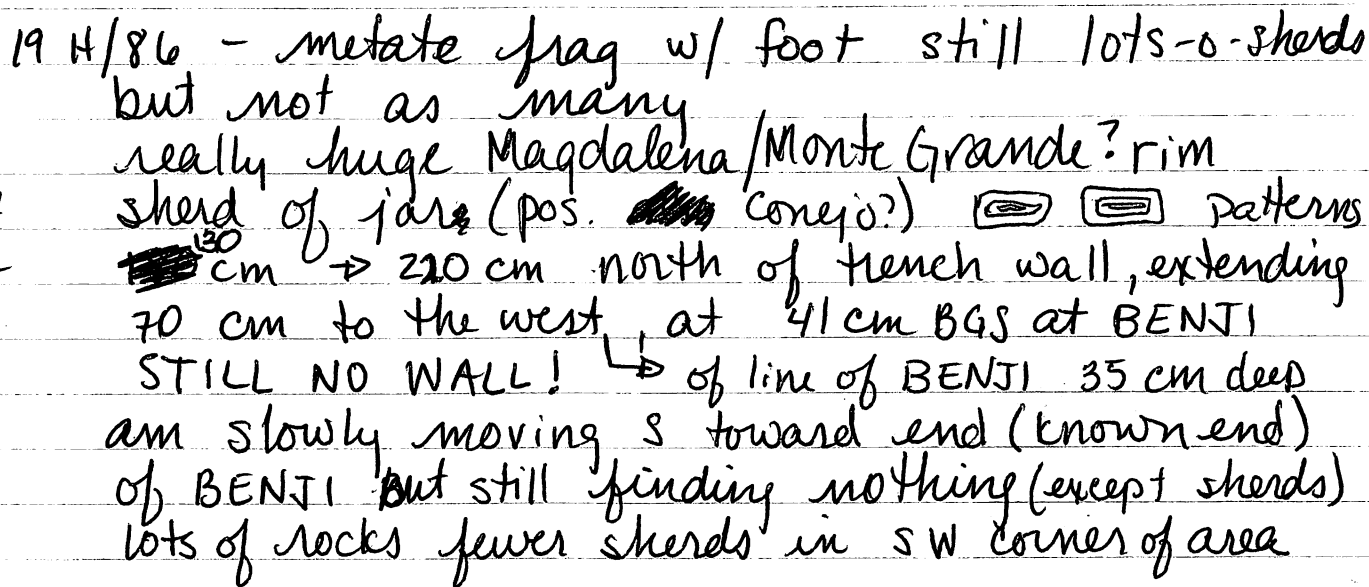 19 H/86 - metate frag w/ foot still lots-o-sherds
but not as many
really huge Magdalena/Monte Grande? rim
sherd of jar (pos. Conejo?) patterns
130 cm → 220 cm north of trench wall, extending
70 cm to the west, at 41 cm BGS at BENJI
STILL NO WALL! ↳ of line of BENJI 35 cm deep
am slowly moving S toward end (known end)
of BENJI but still finding nothing (except sherds)
lots of rocks fewer sherds in SW corner of area